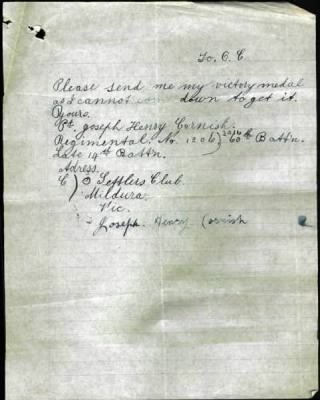 To O. C.
Please send me my victory medal
as I cannot come down to get it.
Yours.
Pt. Joseph Henry Cornish.
Regimental. No. 1206) 60th Battn.
Late 14th Battn.
Adress.
C/o Settlers Club.
Mildura.
Vic.
Joseph. Henry Cornish